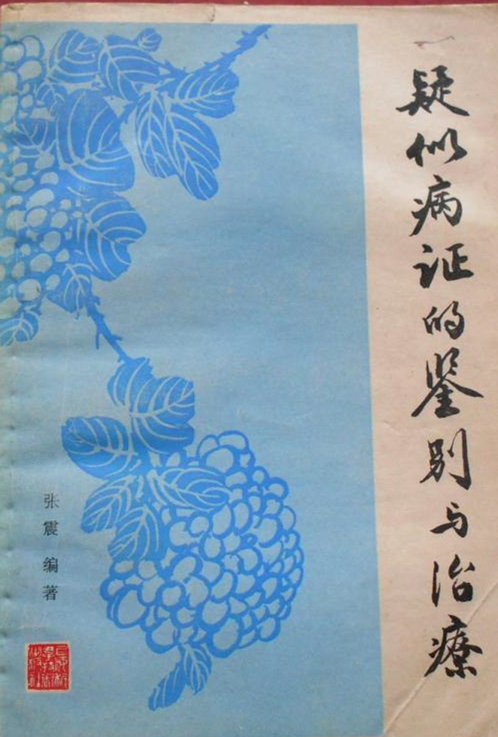 疑似病证的鉴别与治疗
张震编著